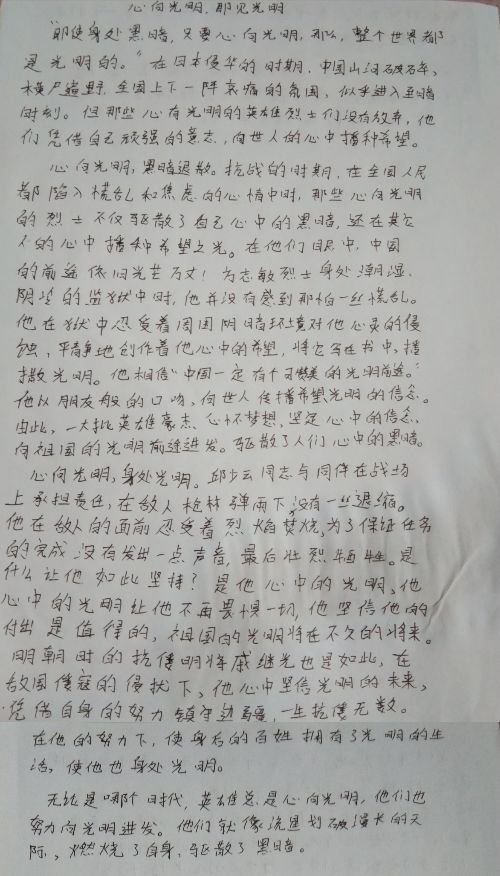 心向光明,即见光明
“即使身处黑暗,只要心向光明,那么,整个世界都
是光明的。”在日本侵华的时期,中国山河破碎,
横尸遍野,全国上下一阵哀痛的氛围,似乎进入至暗
时刻。但那些心有光明的英雄烈士们没有放弃,他
们凭借自己顽强的意志,向世人的心中播种希望。
心向光明,黑暗退散。抗战的时期,在全国人民
都陷入慌乱和焦虑的心情中时,那些心向光明
的烈士不仅驱散了自己心中的黑暗,还在其它
人的心中播种希望之光。在他们眼中,中国
的前途依旧光芒万丈!方志敏烈士身处潮湿、
阴暗的监狱中时,他并没有感到那怕一丝慌乱。
他在狱中忍受着周围阴暗环境对他心灵的侵
蚀,平静地创作着他心中的希望,将它写在书中,播
撒光明。他相信“中国一定有个可赞美的光明前途。”
他以朋友般的口吻,向世人传播希望光明的信念。
由此,一大批英雄豪杰、心怀梦想,坚定心中的信念,
向祖国的光明前途进发。驱散了人们心中的黑暗。
心向光明,身处光明。邱少云同志与同伴在战场
上承担责任,在敌人枪林弹雨下,没有一丝退缩。
他在敌人的面前忍受着烈焰焚烧,为了保证任务
的完成没有发出一点声音,最后壮烈牺牲。是
什么让他如此坚持?是他心中的光明,他
心中的光明让他不再畏惧一切,他坚信他的
付出是值得的,祖国的光明将在不久的将来。
明朝时的抗倭明将戚继光也是如此,在
敌国倭寇的侵扰下,他心中坚信光明的未来,
凭借自身的努力镇守边疆,一生抗倭无数。
在他的努力下,使身后的百姓拥有了光明的生
活,使他也身处光明。
无论是哪个时代,英雄总是心向光明,他们也
努力向光明进发。他们就像流星划破漫长的天
际,燃烧了自身,驱散了黑暗。